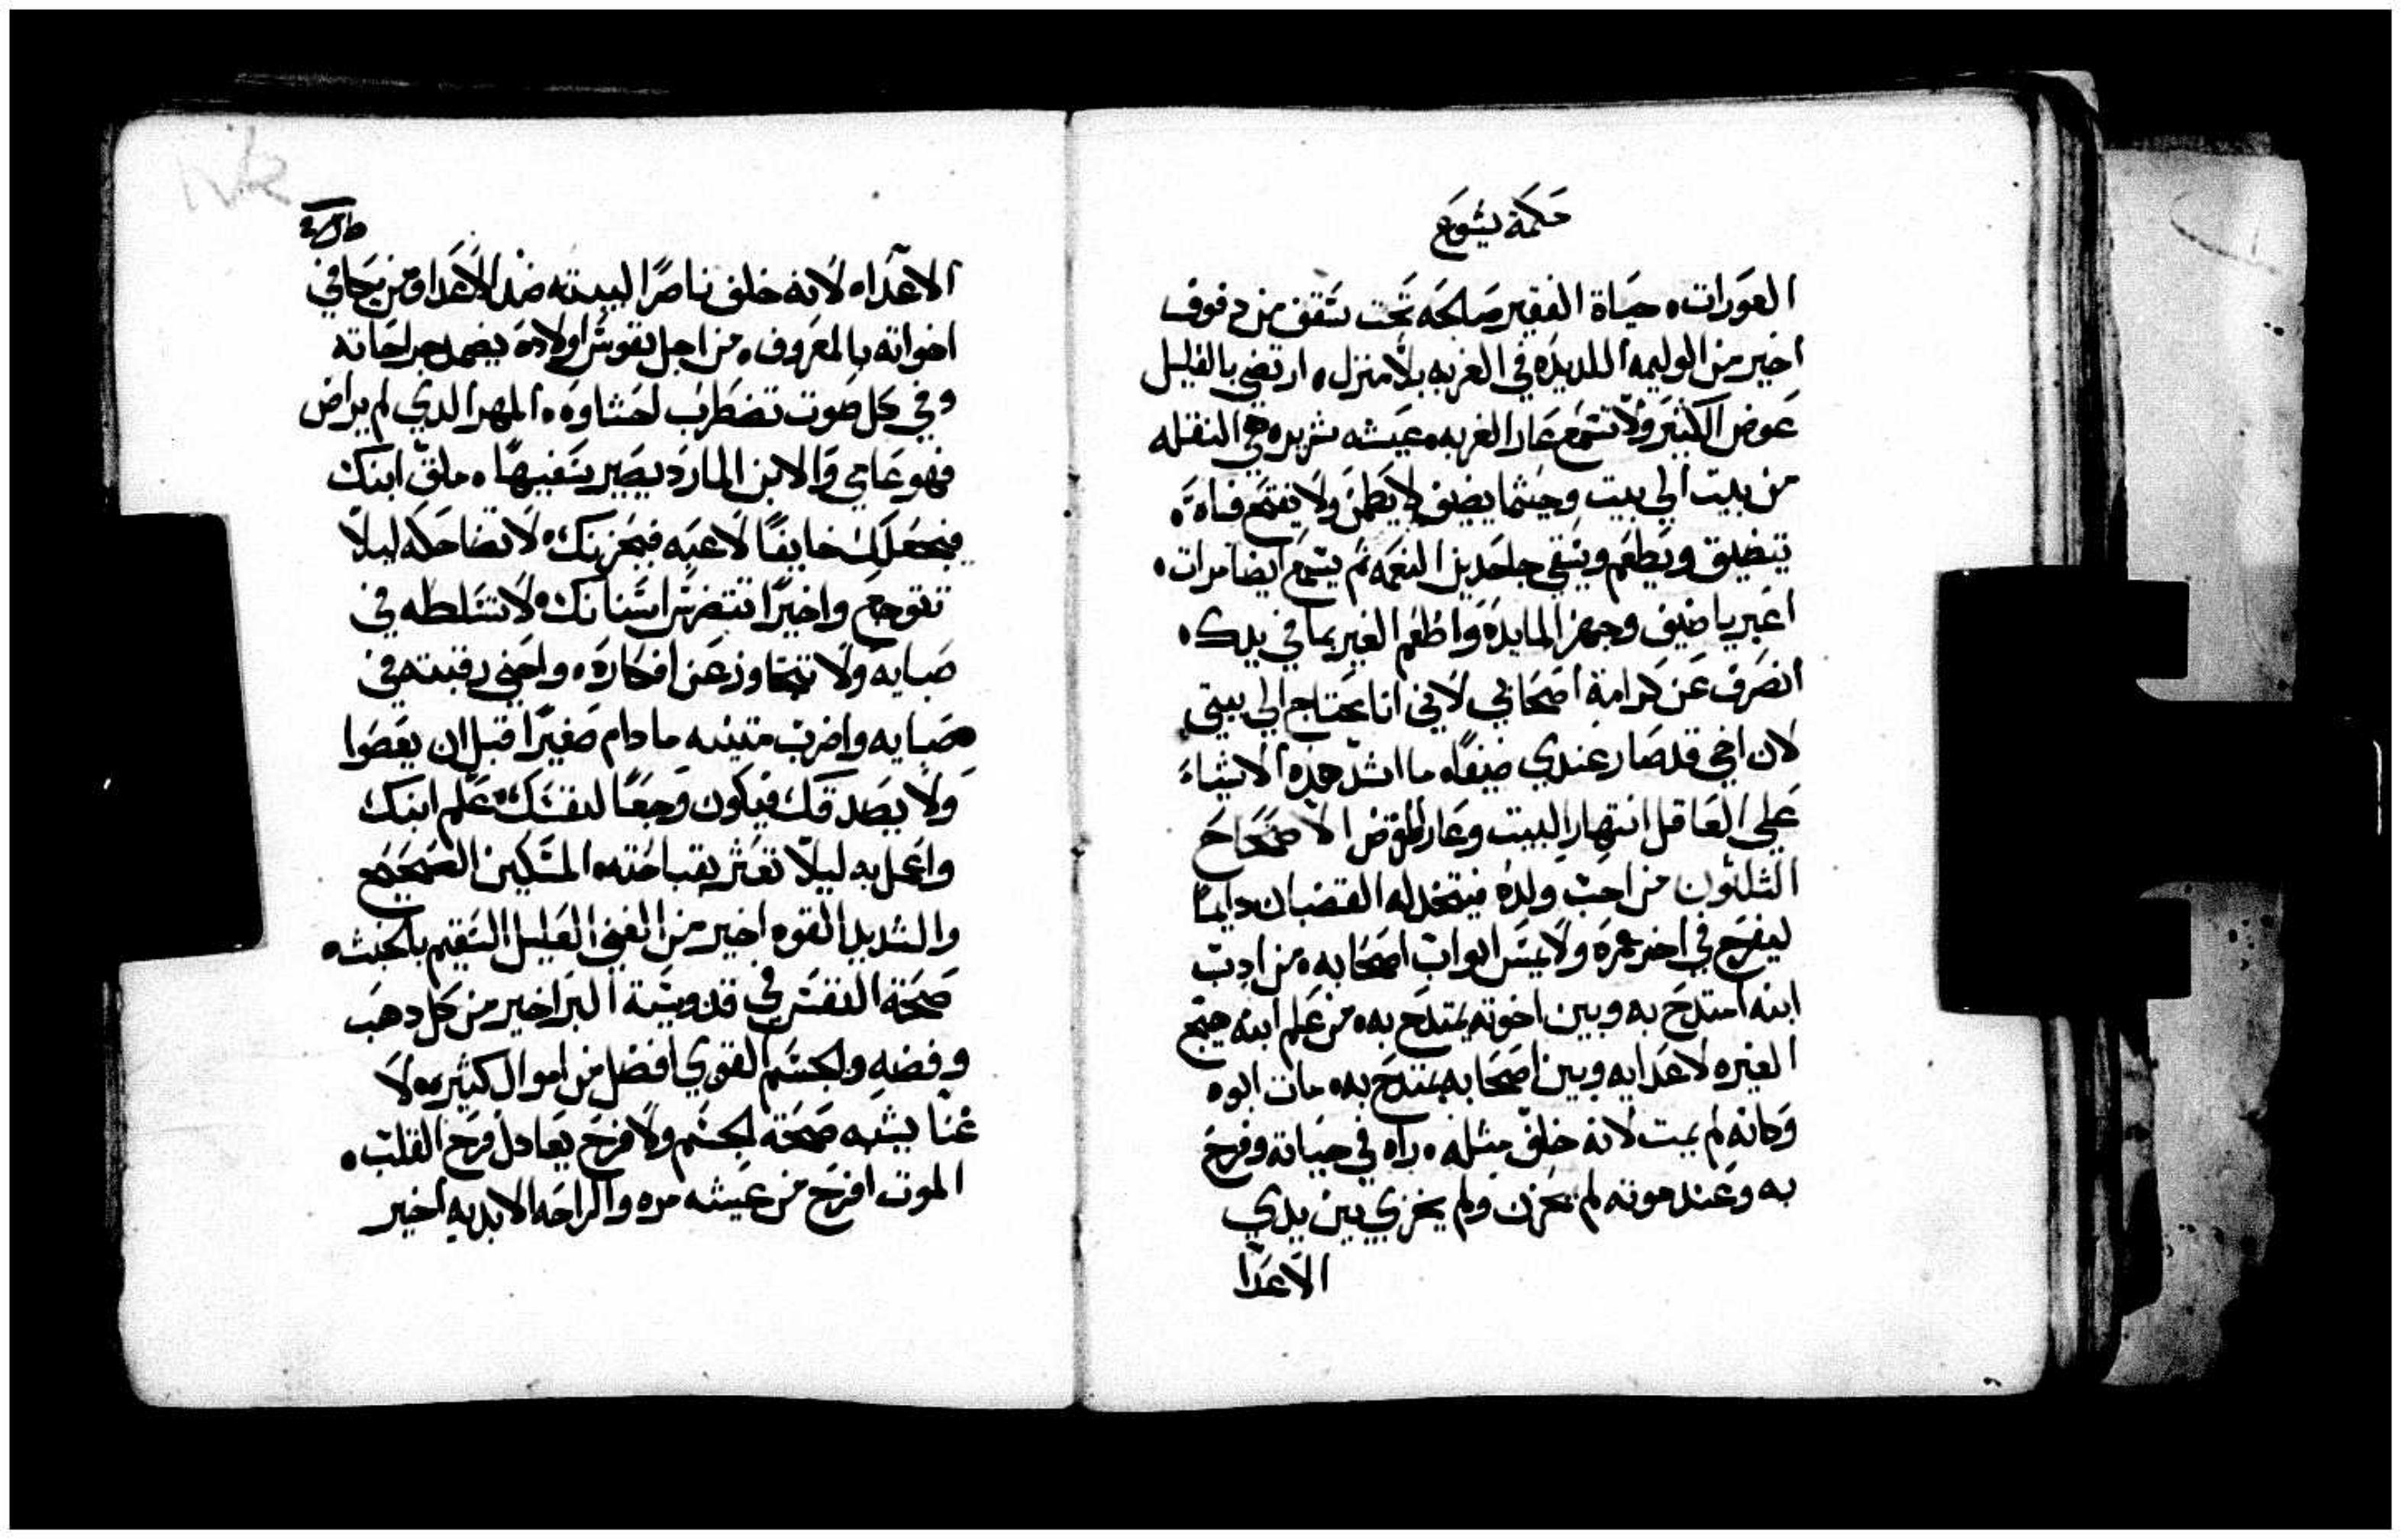 حكمة يشوع
العورات. حياة الفقير صالحه تحت سقف من دفوف
اخير من الوليمه اللديده في الغربه بلا منزل. ارتضي بالقليل
عوض الكثير ولا تسمع عار الغربه. عيشه شريره هي النقله
من بيت الي بيت وحيثما يضيف لا يطمن ولا يفتح فاه.
يتضيق ويطعم ويسقي جاحدين النعمه ثم يسمع ايضا مرات.
اعبر يا ضيف وجهز المايده واطعم الغير بما في يدك.
انصرف عن كرامة اصحابي لاني انا محتاج الي بيتي
لان اخي قد صار عندي ضيفا. ما اشد هذه الاشياء
علي العاقل انتهار البيت وعار المقرض الاصحاح
الثلثون من احب ولده فيتخد له القضبان دايما
ليفرح في اخر عمره ولا يمس ابواب اصحابه. من ادب
ابنه امتدح به وبين اخوته يمتدح به. من علم ابنه هيج
الغيره لاعدايه وبين اصحابه يمتدح به. مات ابوه
وكانه لم يمت لانه خلف مثله. راه في حياته وفرح
به وعند موته لم يحزن ولم يخزي بين يدي
الاعدا
الاعداء. لانه خلف ناصرا لبيته ضد الاعدا ومن يجافي
اخواته بالمعروف. من اجل نفوس اولاده يضمد جراحاته
وفي كل صوت تضطرب احشاوه. المهر الدي لم يراض
فهو عاصي والابن المارد يصير سفيها. ملق ابنك
فيجعلك خايفا لاعبه فيحزنك. لا تضاحكه ليلا
تتوجع واخيرا تتضرس اسنانك. لا تسلطه في
صبايه ولا تتجاوز عن افكاره. واحني رقبته في
صبايه واضرب متنيه ما دام صغيرا قبل ان يعصوا
ولا يصدقك فيكون وجعا لنفسك. علم ابنك
واعمل به ليلا تعثر بقباحته. المسكين الصحيح
والشديد القوه اخير من الغني العليل السقيم بالخبث.
صحة النفس في قدوسية البر اخير من كل دهب
وفضه والجسم القوي افضل من اموال كثيره. لا
غنا يشبه صحة الجسم ولا فرح يعادل فرح القلب.
الموت افرح من عيشه مره والراحه الابديه اخير